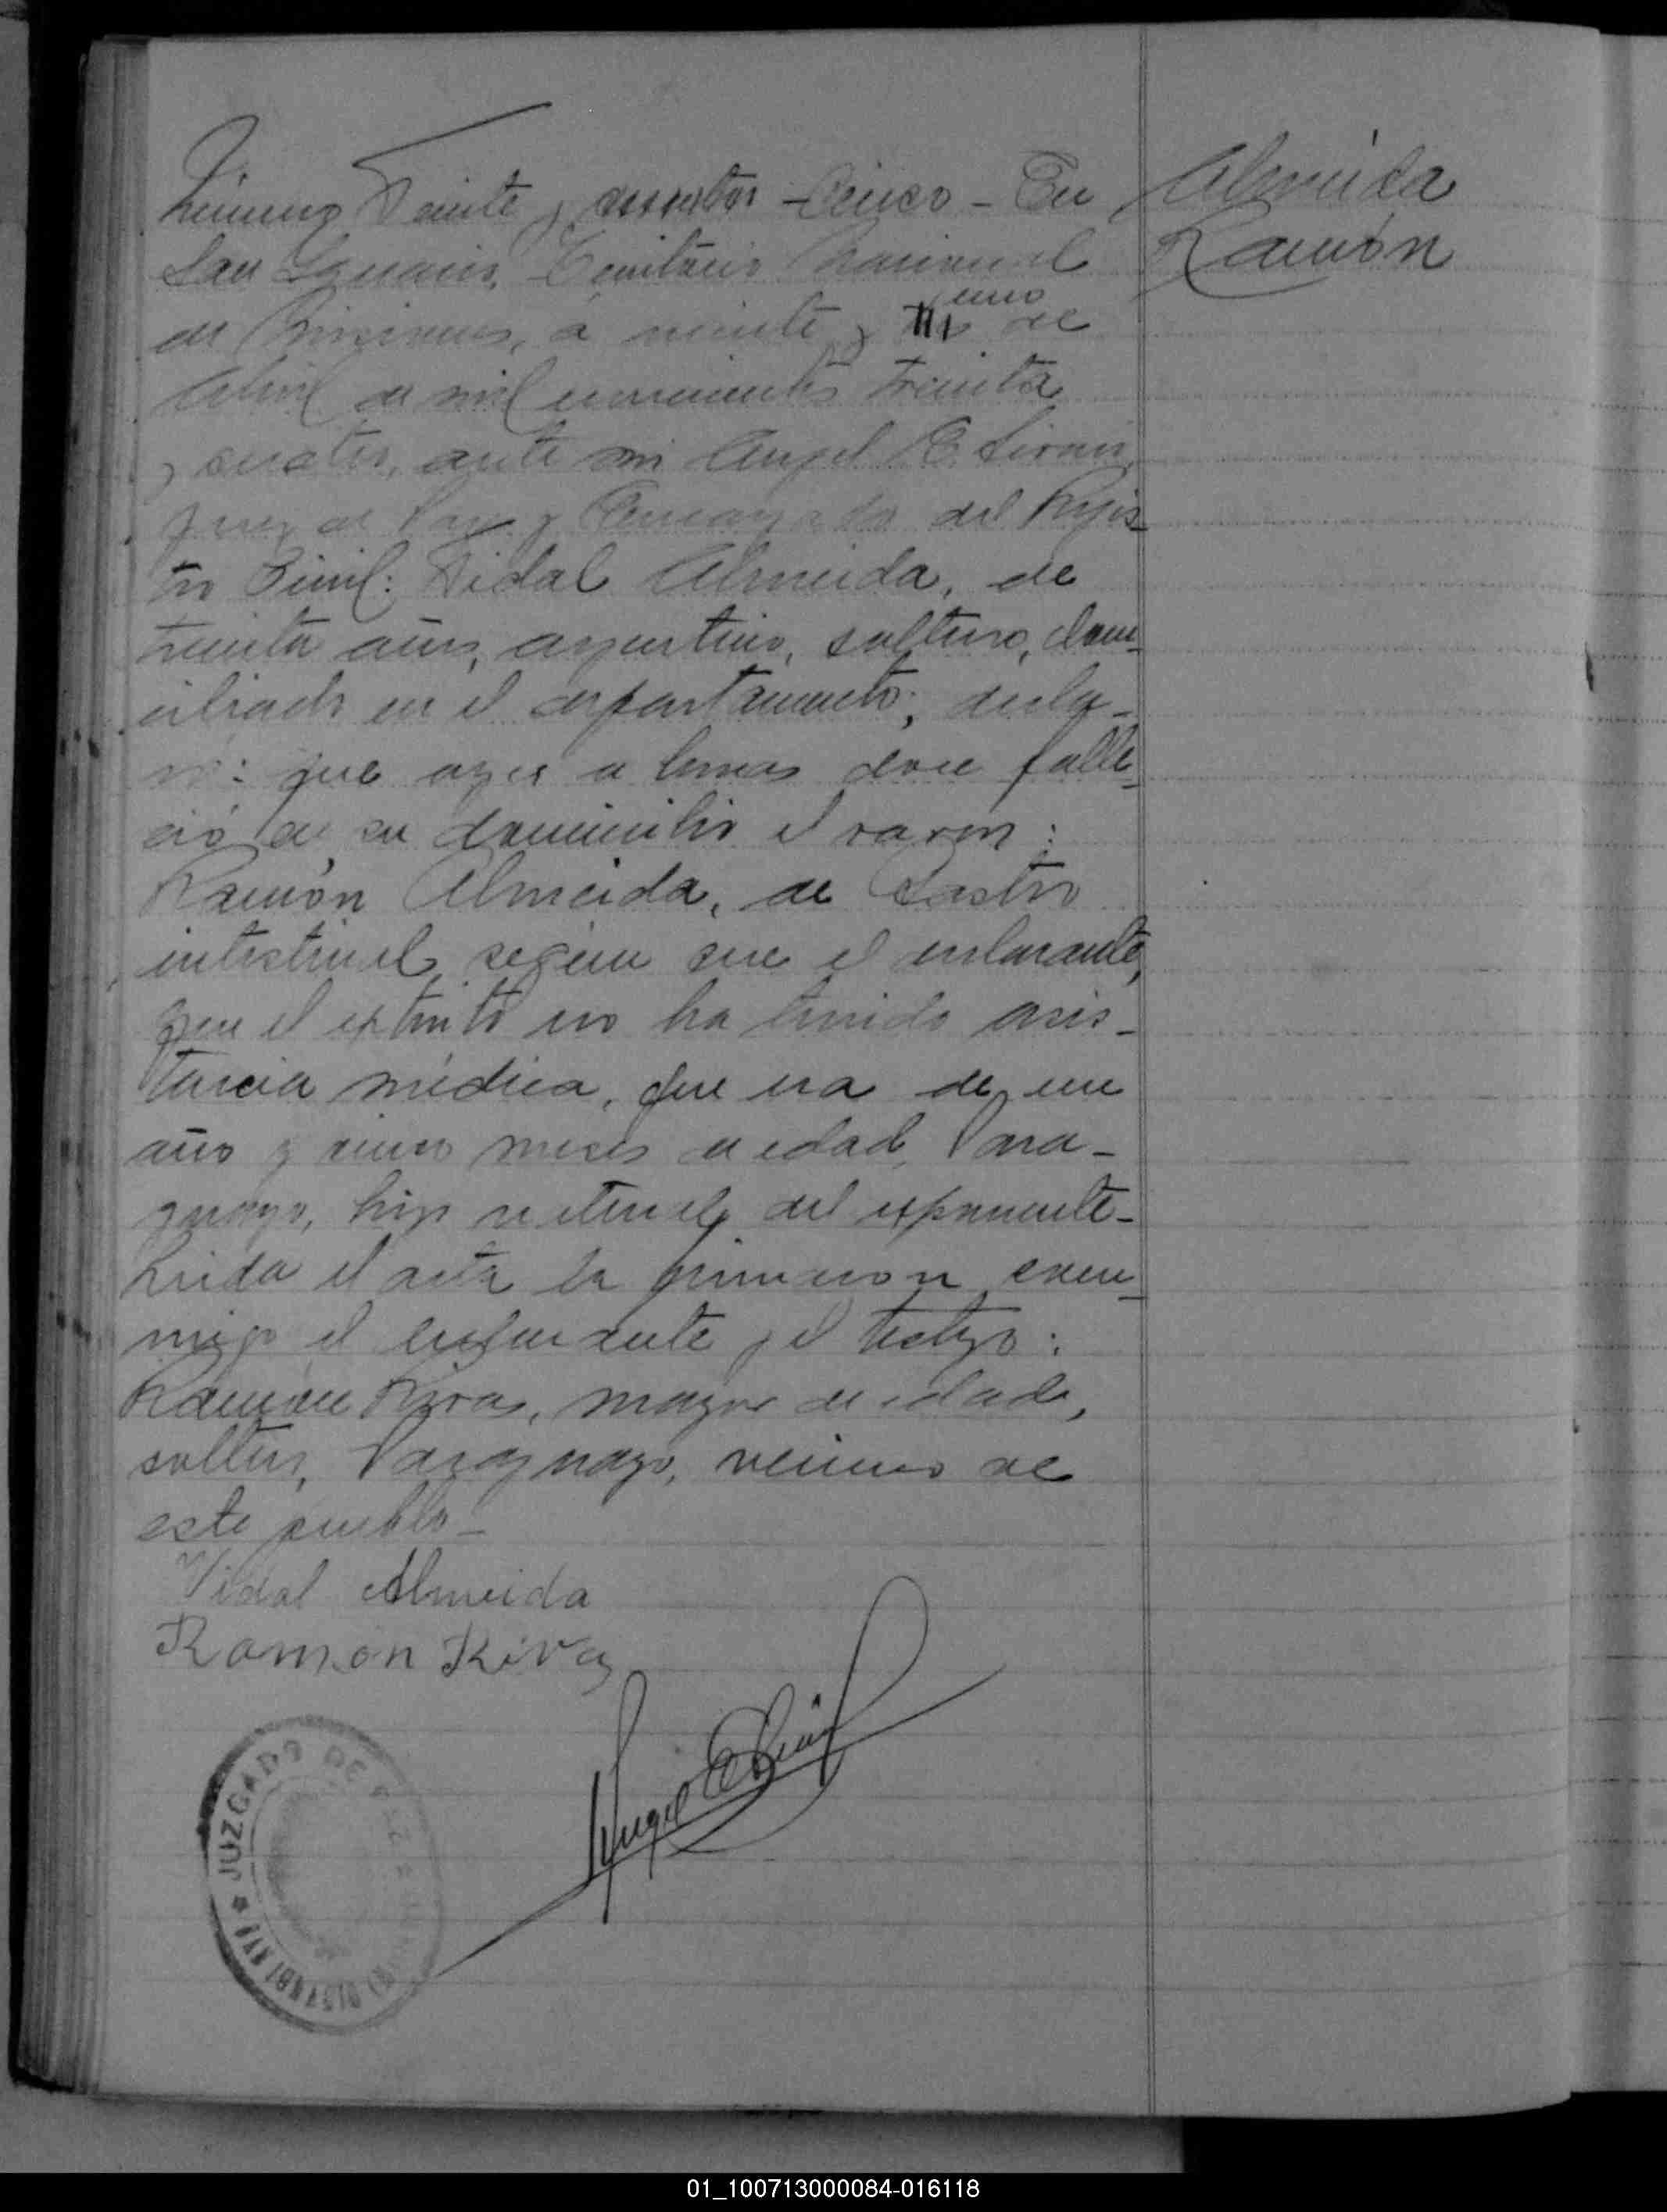 Número Veinte y cuatro - Cinco - En
San Ignacio, Territorio Nacional
de Misiones, á veinte y uno de
Abril de mil novecientos treinta
y cuatro, ante mi Angel E.
Juez de Paz y Encargado del Regis-
tro Civil: Vidal Almeida, de
treinta años, argentino, soltero, domi-
ciliado en el departamento, decla-
ró: que ayer a horas doce falle-
ció en su domicilio el varon:
Ramón Almeida, de Gastro
intestinal, según dice el declarante,
que el extinto no ha tenido asis-
tencia médica, que era de un
año y cinco meses de edad, Para-
guayo, hijo natural del exponente-
Leida el acta la firmaron con-
migo el declarante y el testigo:
Ramón Rivas, mayor de edad,
soltero, Paraguayo, vecino de
este pueblo-
Vidal Almeida
Ramón Rivas
Angel E.
JUZGADO DE PAZ
Almeida
Ramón
01_100713000084-016118